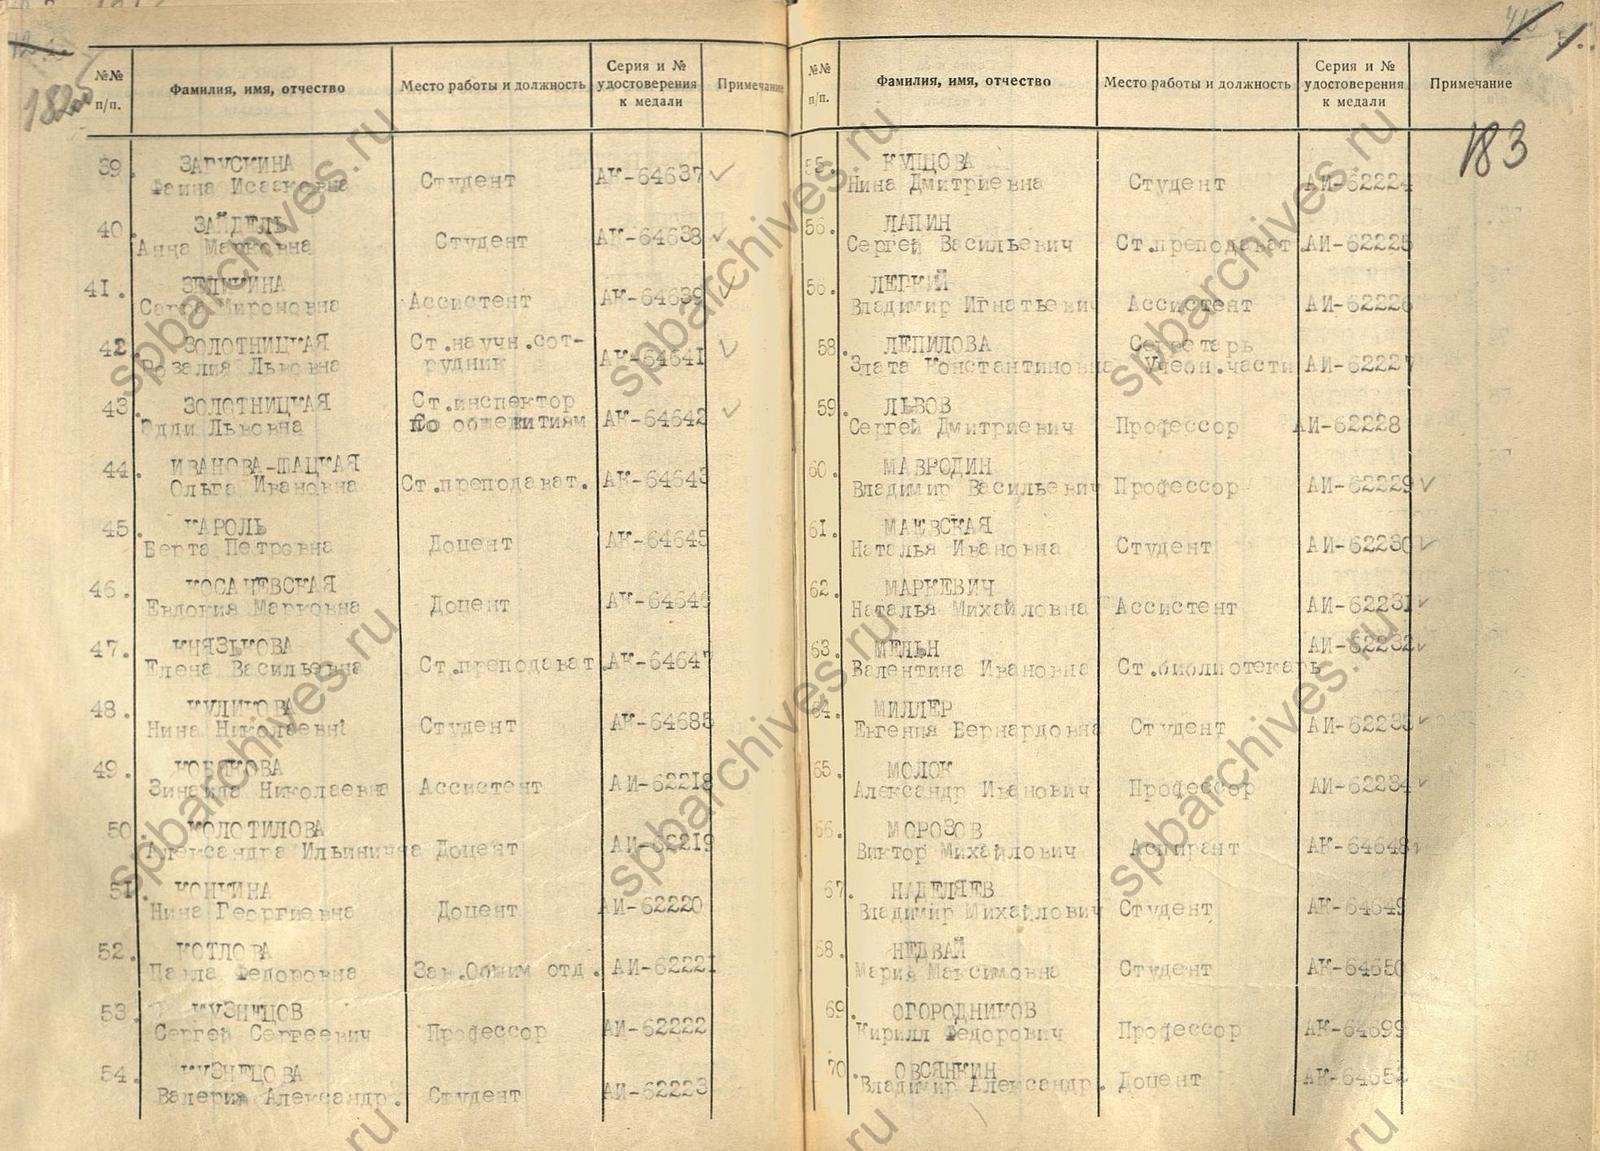 182об
№№ п/п.
Фамилия, имя, отчество
Место работы и должность
Серия и № удостоверения к медали
Примечание
39. ЗАГУСКИНА
Фаина Исааковна Студент АК-64637 ✓
40. ЗАЙДЕЛЬ
Анна Марковна Студент АК-64638 ✓
41. ЗЕЛИКИНА
Сарра Мироновна Ассистент АК-64639 ✓
42. ЗОЛОТНИЦКАЯ Ст.научн.сот-
Розалия Львовна рудник АК-64641 ✓
43. ЗОЛОТНИЦКАЯ Ст.инспектор
Эдди Львовна по общежитиям АК-64642 ✓
44. ИВАНОВА-ШАЦКАЯ
Ольга Ивановна Ст.преподават. АК-64643
45. КАРОЛЬ
Берта Петровна Доцент АК-64645
46. КОСАЧЕВСКАЯ
Евдокия Марковна Доцент АК-64646
47. КНЯЗЬКОВА
Елена Васильевна Ст.преподават. АК-64647
48. КУЛИКОВА
Нина Николаевна Студент АК-64685
49. КОБЯКОВА
Зинаида Николаевна Ассистент АИ-62218
50. КОЛОТИЛОВА
Александра Ильинична Доцент АИ-62219
51. КОНКИНА
Нина Георгиевна Доцент АИ-62220
52. КОТЛОВА
Павла Федоровна Зав.Общим отд. АИ-62221
53. КУЗНЕЦОВ
Сергей Сергеевич Профессор АИ-62222
54. КУЗНЕЦОВА
Валерия Александр. Студент АИ-62223
183
№№ п/п.
Фамилия, имя, отчество
Место работы и должность
Серия и № удостоверения к медали
Примечание
55. КУПЦОВА
Нина Дмитриевна Студент АИ-62224
56. ЛАПИН
Сергей Васильевич Ст.преподават. АИ-62225
56. ЛЕГКИЙ
Владимир Игнатьевич Ассистент АИ-62226
58. ЛЕПИЛОВА Секретарь
Злата Константиновна Учебн.части АИ-62227
59. ЛЬВОВ
Сергей Дмитриевич Профессор АИ-62228
60. МАВРОДИН
Владимир Васильевич Профессор АИ-62229 ✓
61. МАЕВСКАЯ
Наталья Ивановна Студент АИ-62230 ✓
62. МАРКЕВИЧ
Наталья Михайловна Ассистент АИ-62231 ✓
63. МЕЛЬН АИ-62232 ✓
Валентина Ивановна Ст.библиотекарь
64. МИЛЛЕР
Евгения Бернардовна Студент АИ-62233 ✓
65. МОЛОК
Александр Иванович Профессор АИ-62234 ✓
66. МОРОЗОВ
Виктор Михайлович Аспирант АК-64648 ✓
67. НАДЕЛЯЕВ
Владимир Михайлович Студент АК-64649
68. НЕДВАЙ
Мария Максимовна Студент АК-64650
69. ОГОРОДНИКОВ
Кирилл Федорович Профессор АК-64699
70. ОВСЯНКИН
Владимир Александр. Доцент АК-64652
spbarchives.ru
spbarchives.ru
spbarchives.ru
spbarchives.ru
spbarchives.ru
spbarchives.ru